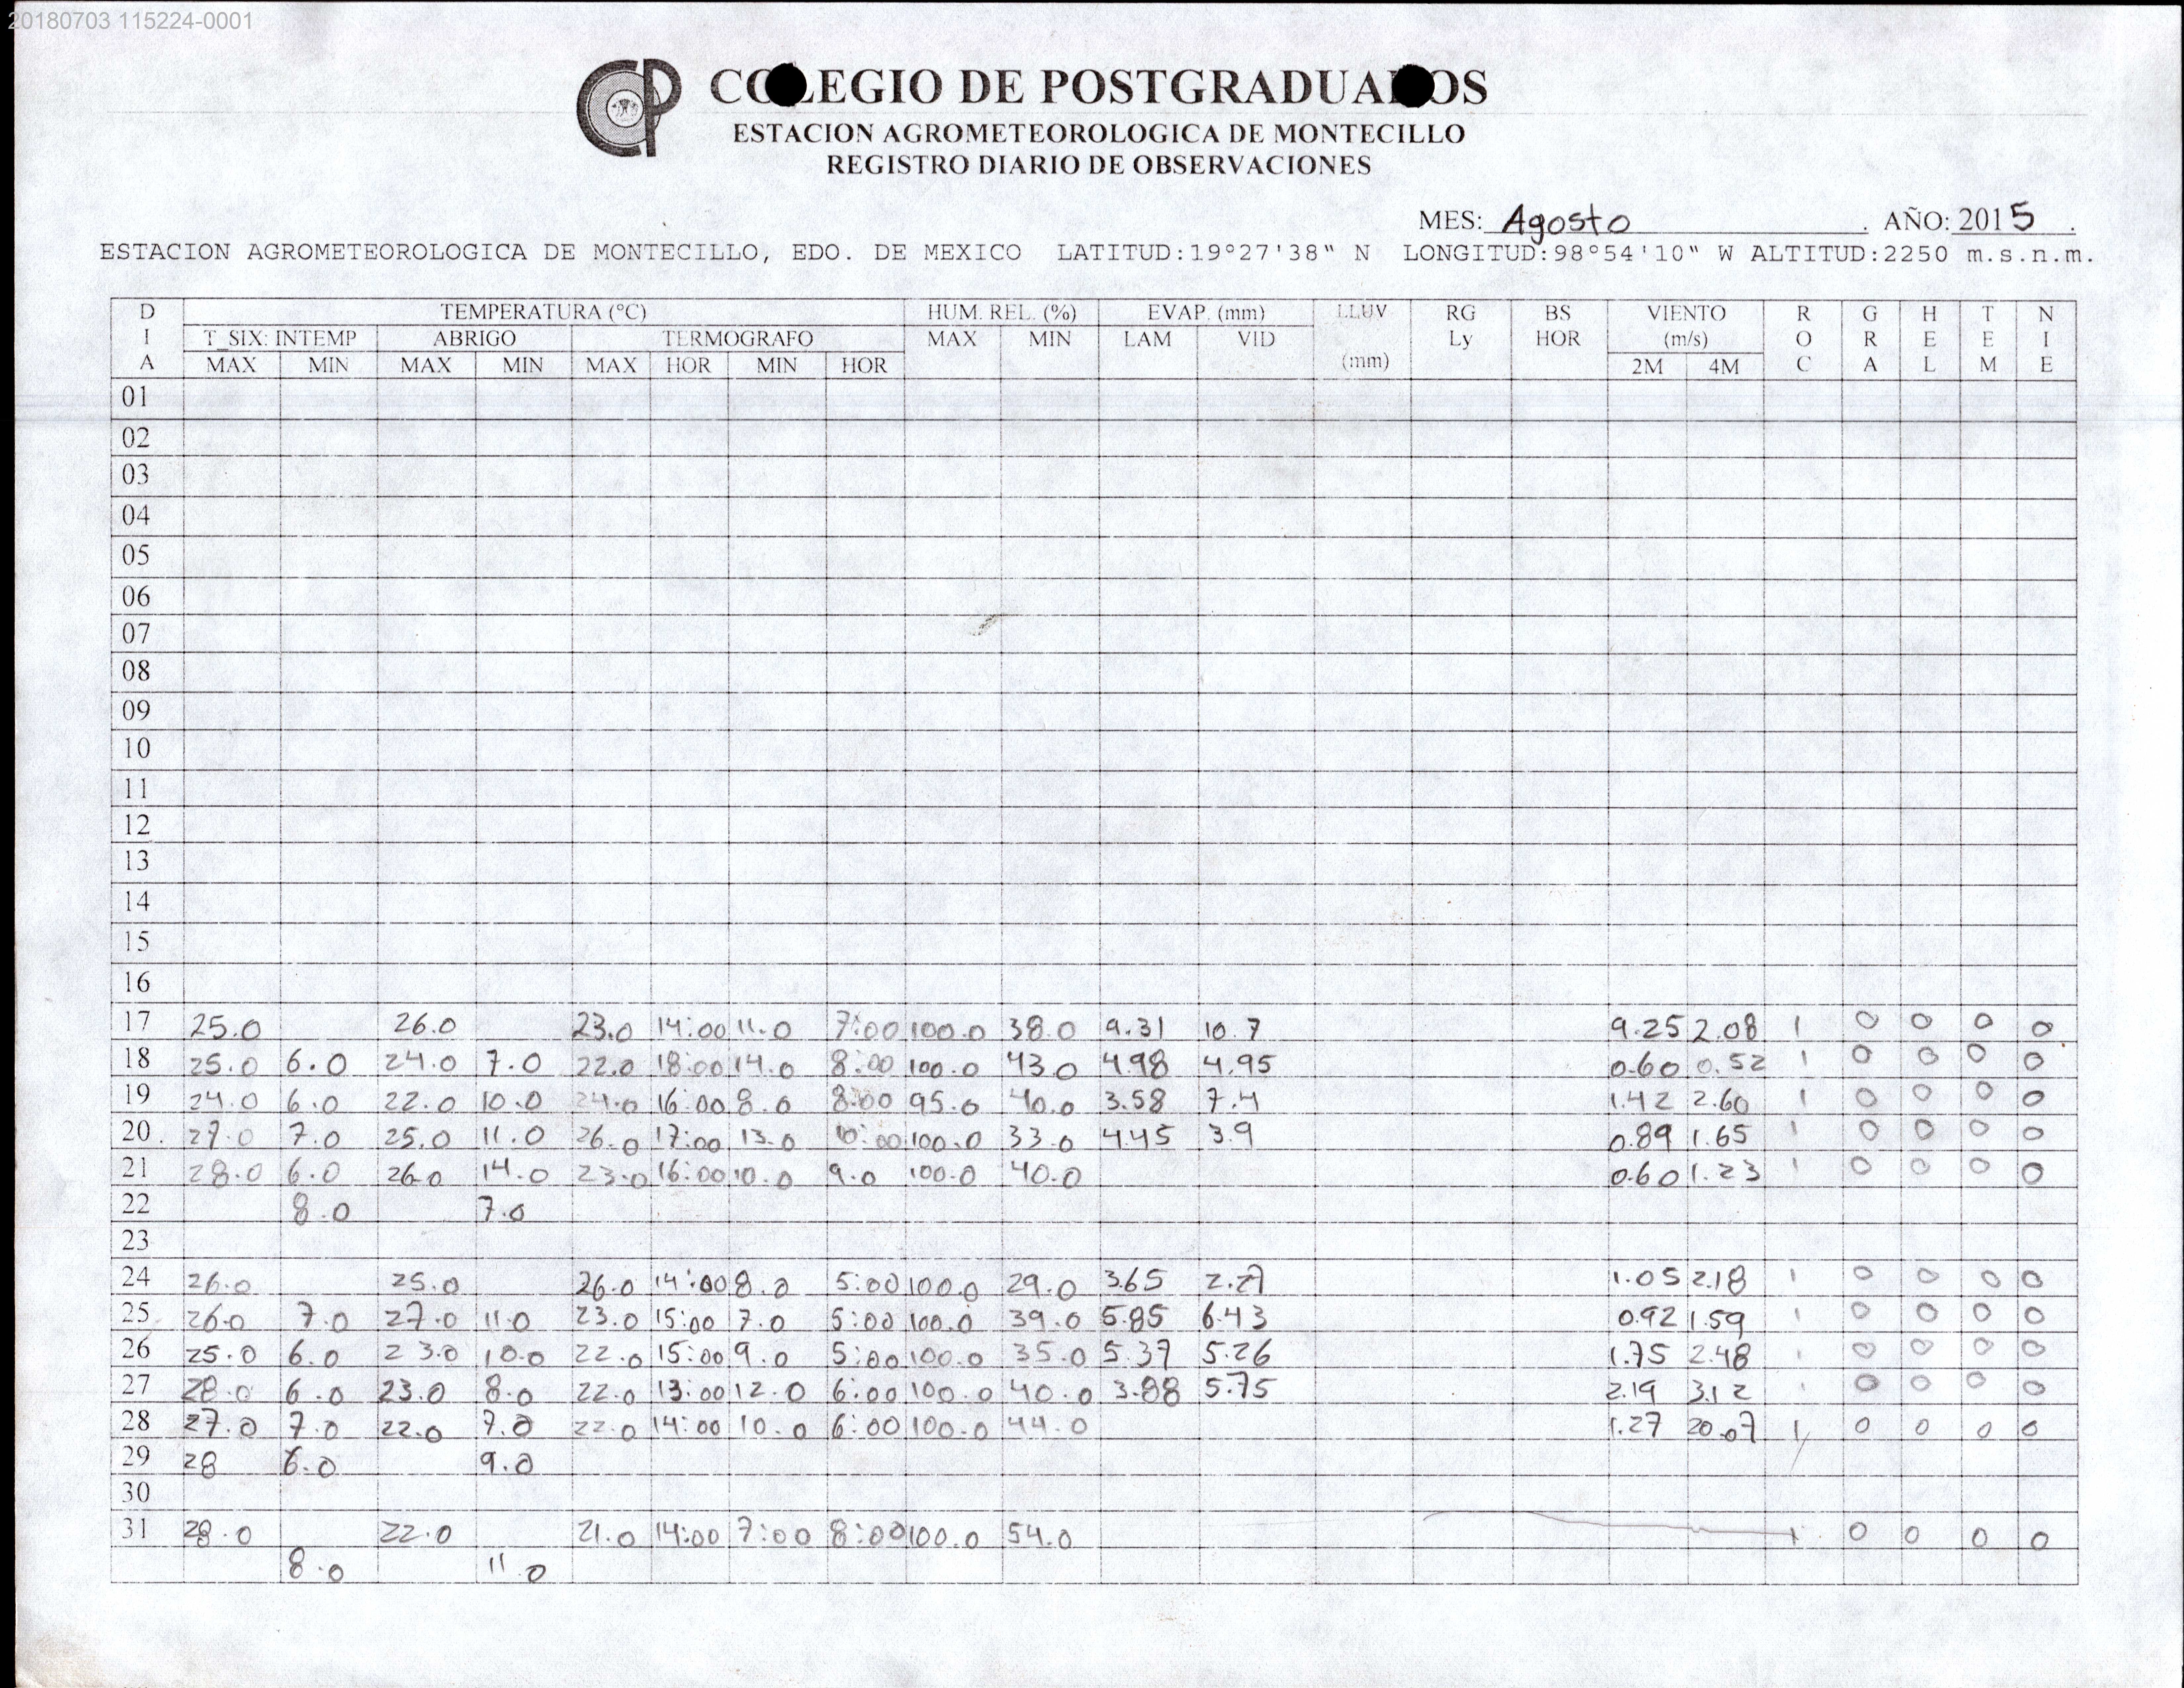 20180703 115224-0001
COLEGIO DE POSTGRADUADOS
ESTACION AGROMETEOROLOGICA DE MONTECILLO
REGISTRO DIARIO DE OBSERVACIONES
MES: Agosto . AÑO: 2015 .
ESTACION AGROMETEOROLOGICA DE MONTECILLO, EDO. DE MEXICO LATITUD:19°27'38" N LONGITUD:98°54'10" W ALTITUD:2250 m.s.n.m.
D TEMPERATURA (°C) HUM. REL. (%) EVAP. (mm) LLUV RG BS VIENTO R G H T N
I T_SIX: INTEMP ABRIGO TERMOGRAFO MAX MIN LAM VID Ly HOR (m/s) O R E E I
A MAX MIN MAX MIN MAX HOR MIN HOR (mm) 2M 4M C A L M E
01
02
03
04
05
06
07
08
09
10
11
12
13
14
15
16
17 25.0 26.0 23.0 14:00 11.0 7:00 100.0 38.0 9.31 10.7 9.25 2.08 1 0 0 0 0
18 25.0 6.0 24.0 7.0 22.0 18:00 14.0 8:00 100.0 43.0 4.98 4.95 0.60 0.52 1 0 0 0 0
19 24.0 6.0 22.0 10.0 24.0 16:00 8.0 8:00 95.0 40.0 3.58 7.4 1.42 2.60 1 0 0 0 0
20 27.0 7.0 25.0 11.0 26.0 17:00 13.0 10:00 100.0 33.0 4.45 3.9 0.89 1.65 1 0 0 0 0
21 28.0 6.0 26.0 14.0 23.0 16:00 10.0 9.0 100.0 40.0 0.60 1.23 1 0 0 0 0
22 8.0 7.0
23
24 26.0 25.0 26.0 14:00 8.0 5:00 100.0 29.0 3.65 1.05 2.18 1 0 0 0 0
25 26.0 7.0 27.0 11.0 23.0 15:00 7.0 5:00 100.0 39.0 5.85 6.43 0.92 1.59 1 0 0 0 0
26 25.0 6.0 23.0 10.0 22.0 15:00 9.0 5:00 100.0 35.0 5.37 5.26 1.75 2.48 1 0 0 0 0
27 28.0 6.0 23.0 8.0 22.0 13:00 12.0 6:00 100.0 40.0 3.88 5.75 2.19 3.12 1 0 0 0 0
28 27.0 7.0 22.0 7.0 22.0 14:00 10.0 6:00 100.0 44.0 1.27 20.07 1 0 0 0 0
29 28 6.0 9.0
30
31 28.0 22.0 21.0 14:00 7:00 8:00 100.0 54.0 1 0 0 0 0
8.0 11.0